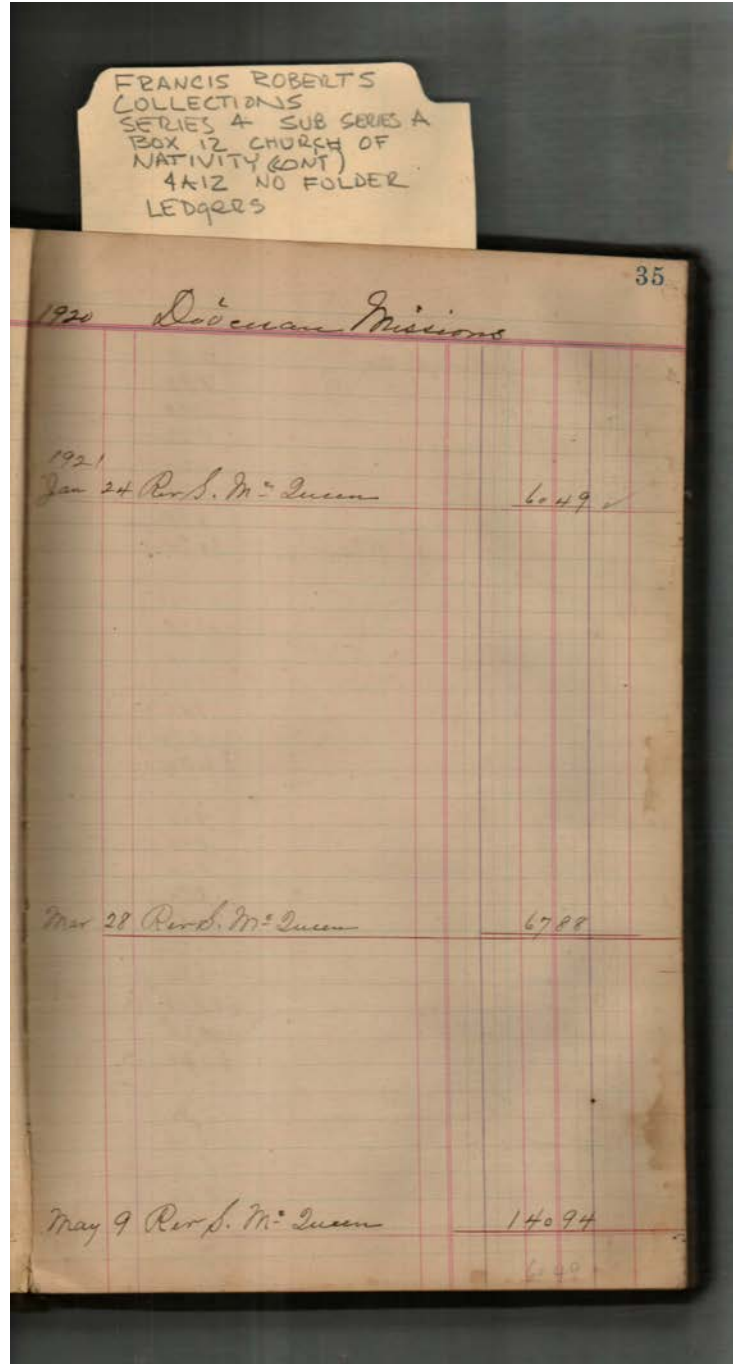 FRANCIS ROBERTS
COLLECTIONS
SERIES 4 SUB SERIES A
BOX 12 CHURCH OF
NATIVITY (CONT)
4A12 NO FOLDER
LEDgERS
35
1920 Diocesan Missions
1921
Jan 24 Rev S. Mc Queen 6049 ✓
Mar 28 Rev S. Mc Queen 6788
May 9 Rev S. Mc Queen 14094
6049